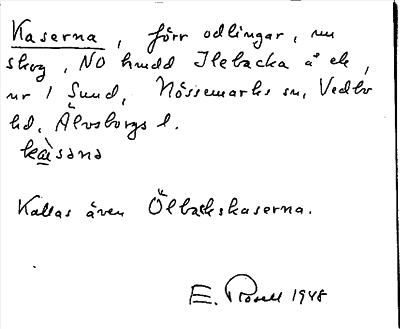 Kaserna, förr odlingar, nu
skog, NO hudd Ilebacka å ek,
nr 1 Sund, Nössemarks sn, Vedbo
hd, Älvsborgs l.
kàisəna
Kallas även Ölbackskaserna.
E. Rosell 1948